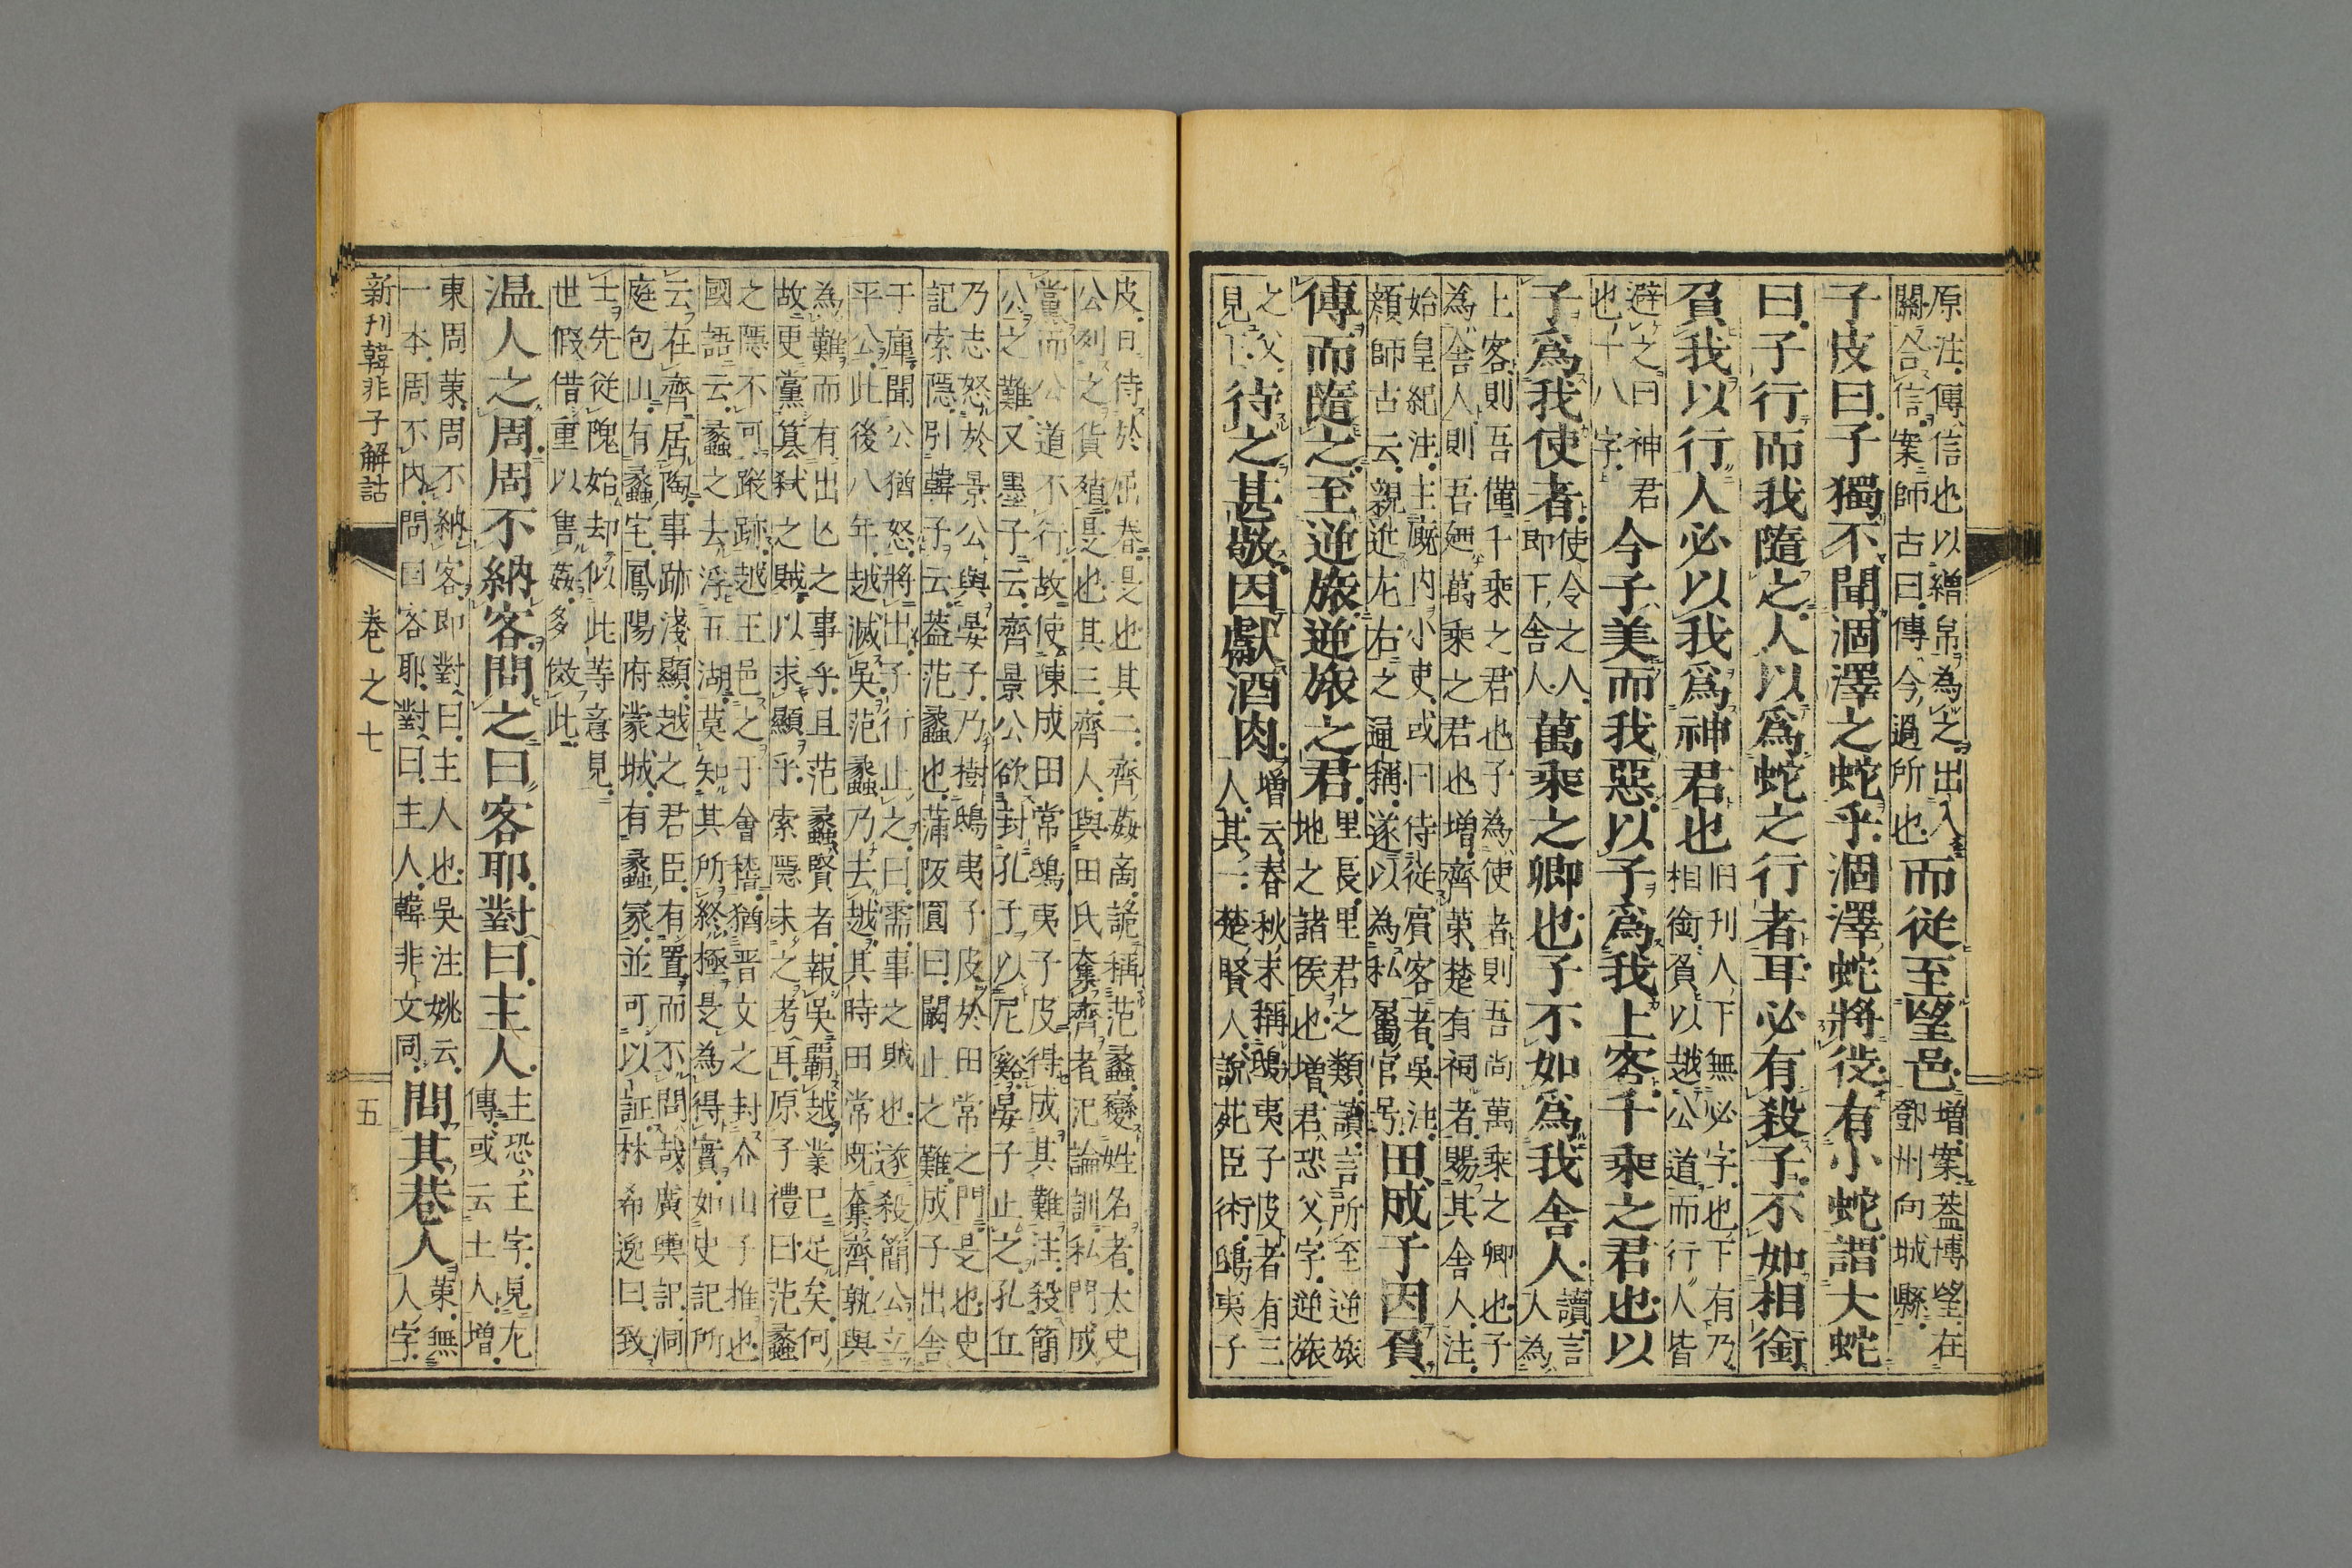 原注傳信也以繒帛為之出入
關合信案師古曰傳今過所也
而從至望邑
增案蓋博望在
鄧州向城縣
子皮曰子獨不聞涸澤之蛇乎涸澤蛇將徙有小蛇謂大蛇
曰子行而我隨之人以爲蛇之行者耳必有殺子不如相銜
負我以行人必以我爲神君也
旧刊人下無必字也下有乃
相銜負以越公道而行人皆
避之曰神君
也十八字
今子美而我惡以子爲我上客千乘之君也以
子爲我使者
使令之人
即下舍人
萬乘之卿也子不如爲我舍人
讀言
人為
上客則吾僅千乘之君也子為使者則吾尚萬乘之卿也子
為舍人則吾廼萬乘之君也增齊策楚有祠者賜其舍人注
始皇紀注主廐内小吏或曰侍從賓客者吳注
顏師古云親近左右之通稱遂以為私屬官号
田成子因負
傳而隨之至逆旅逆旅之君
里長里君之類讀言所至逆旅
地之諸侯也增君恐父字逆旅
之父
見下
待之甚敬因獻酒肉
增云春秋末稱鴟夷子皮者有三
人其一楚賢人說苑臣術鴟夷子
皮日侍於屈春是也其二齊姦商詭稱范蠡變姓名者太史
公列之貨殖是也其三齊人與田氏奪齊者氾論訓私門成
黨而公道不行故使陳成田常鴟夷子皮得成其難注殺簡
公之難又墨子云齊景公欲封孔子以尼谿晏子止之孔丘
乃志怒於景公與晏子乃樹鴟夷子皮於田常之門是也史
記索隱引韓子云蓋范蠡也蒲阪圓曰闞止之難成子出舍
于庫聞公猶怒將出子行止之曰需事之賊也遂殺簡公立
平公此後八年越滅吳范蠡乃去越其時田常既奪齊孰與
為難而有出亾之事乎且范蠡賢者報吳霸越業已足矣何
故更黨篡弑之賊以求顯乎索隱未之考耳原子禮曰范蠡
之隱不可蹤跡越王邑之于會稽猶晋文之封介山子推也
國語云蠡之去浮五湖莫知其所終極是為得實如史記所
云在齊居陶事跡淺顯越之君臣有置而不問哉廣輿記洞
庭包山有蠡宅鳳陽府蒙城有蠡冢並可以証林希逸曰致
士先從隗始却似此等意見
世假借重以售姦多傚此
温人之周周不納客問之曰客耶對曰主人
主恐王字見左
傳或云士人增
東周策周不納客即對曰主人也吳注姚云
一本周不内問曰客耶對曰主人韓非文同
問其巷人
策無
人字
新刊韓非子解詁
卷之七
五